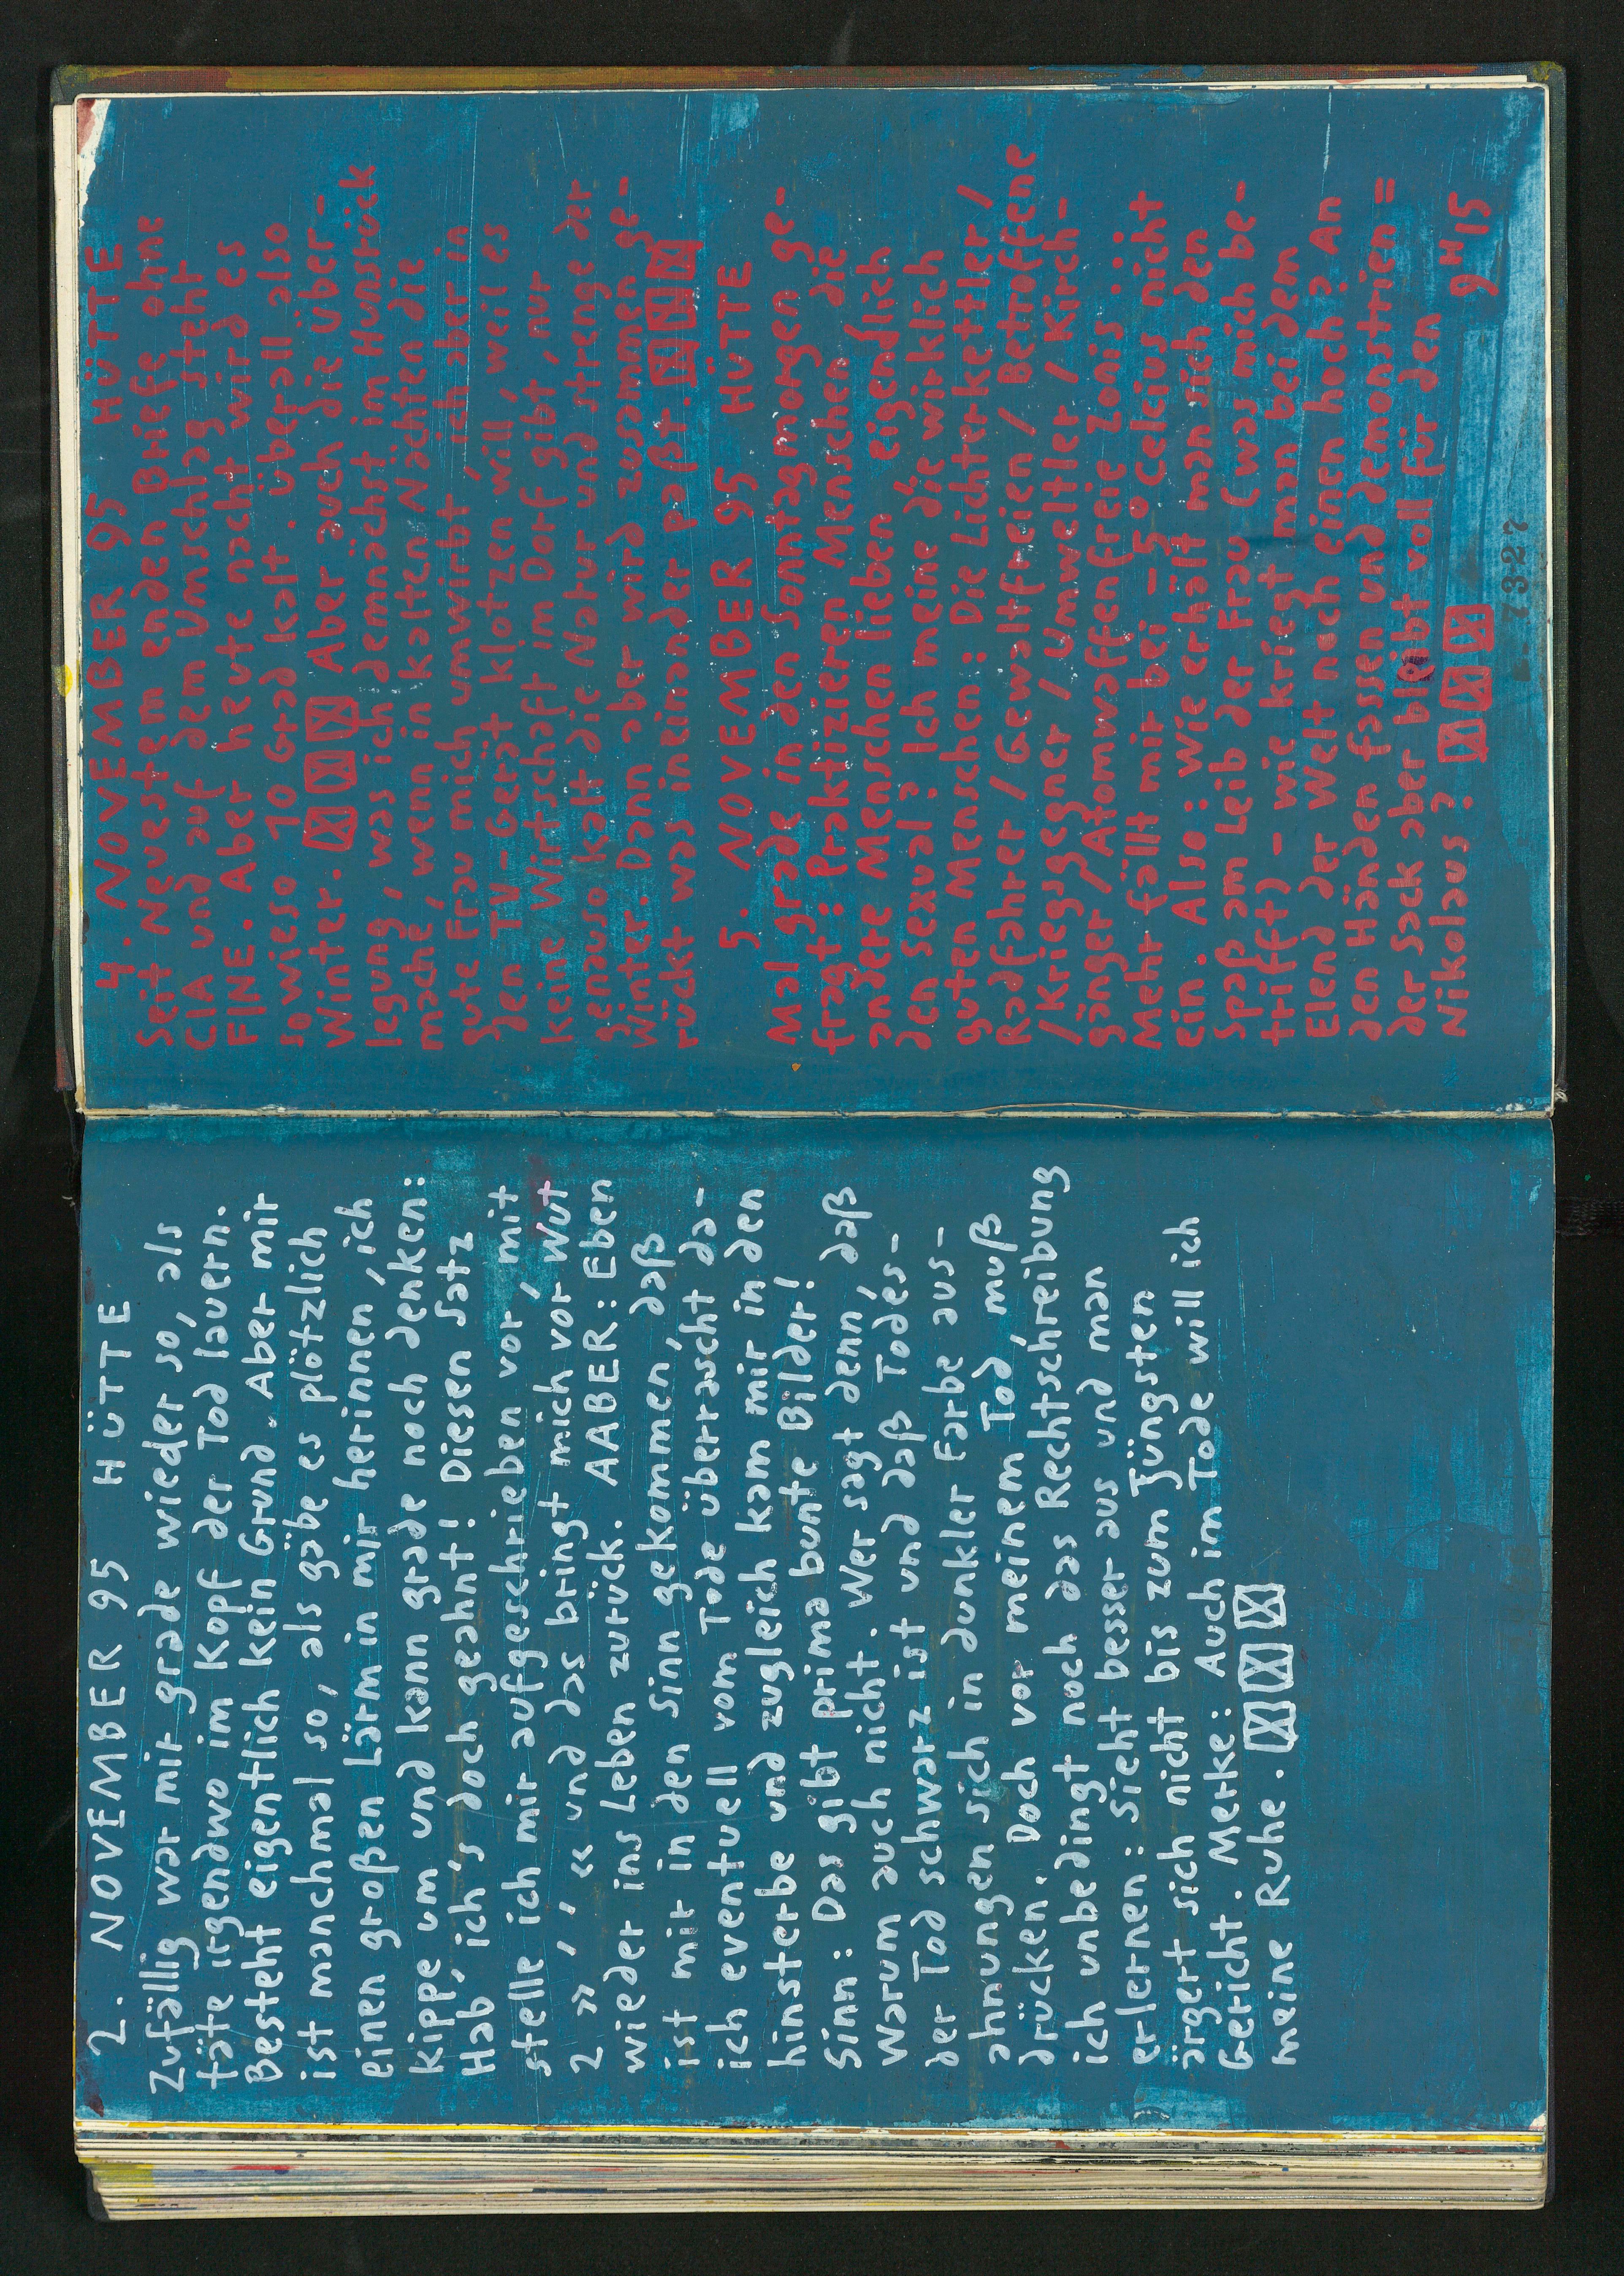 2. NOVEMBER 95 HÜTTE
Zufällig war mir grade wieder so, als
täte irgendwo im Kopf der Tod lauern.
Besteht eigentlich kein Grund. Aber mir
ist manchmal so, als gäbe es plötzlich
einen großen Lärm in mir herinnen, ich
kippe um und kann grade noch denken:
Hab, ich's doch geahnt! Diesen Satz
stelle ich mir aufgeschrieben vor, mit
2 », « und das bringt mich vor Wut
wieder ins Leben zurück. AABER: Eben
ist mir in den Sinn gekommen, daß
ich eventuell vom Tode überrascht da-
hinsterbe und zugleich kam mir in den
Sinn: Das gibt prima bunte Bilder!
Warum auch nicht. Wer sagt denn, daß
der Tod schwarz ist und daß Todes-
ahnungen sich in dunkler Farbe aus-
drücken. Doch vor meinem Tod, muß
ich unbedingt noch das Rechtschreibung
erlernen: Sieht besser aus und man
ärgert sich nicht bis zum Jüngsten
Gericht. Merke: Auch im Tode will ich
meine Ruhe.
4. NOVEMBER 95 HÜTTE
Seit Neuestem enden Briefe ohne
CIA und auf dem Umschlag steht
FINE. Aber heute nacht wird es
sowieso 10 Grad kalt. Überall also
Winter. Aber auch die Über-
legung, was ich demnächst im Hunsrück
mache, wenn in kalten Nächten die
gute Frau mich umwirbt, ich aber in
den TV-Gerät klotzen will, weil es
keine Wirtschaft im Dorf gibt, nur
genauso kalt die Natur und strenge der
Winter. Dann aber wird zusammen ge-
rückt was ineinander paßt.
5. NOVEMBER 95 HÜTTE
Mal grade in den Sonntagmorgen ge-
fragt: Praktizieren Menschen die
andere Menschen lieben eigendlich
den sexual? Ich meine die wirklich
guten Menschen: Die Lichterkettler/
Radfahrer / Gewaltfreien / Betroffene
/ Kriegsgegner / Umweltler / Kirch-
gänger / Atomwaffenfreie Zonis ::
Mehr fällt mir bei -5° Celcius nicht
ein. Also: Wie erhält man sich den
Spaß am Leib der Frau (was mich be-
trifft) - wie kriegt man bei dem
Elend der Welt noch einen hoch? An
den Händen fassen und demonstrien =
der Sack aber bleibt voll für den
Nikolaus? 9H15
7327